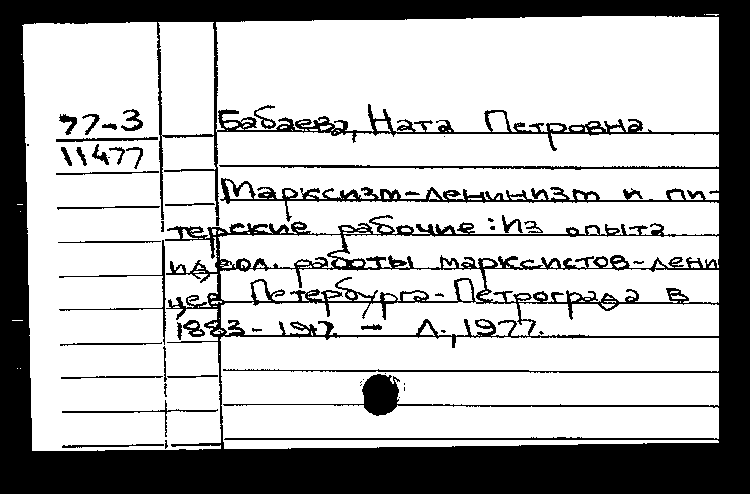 77-3
11477
Бабаева, Ната Петровна.
Марксизм-ленинизм и пи-
терские рабочие: Из опыта
идеол. работы марксистов-лени
цев Петербурга-Петрограда в
1883-1917. - Л., 1977.